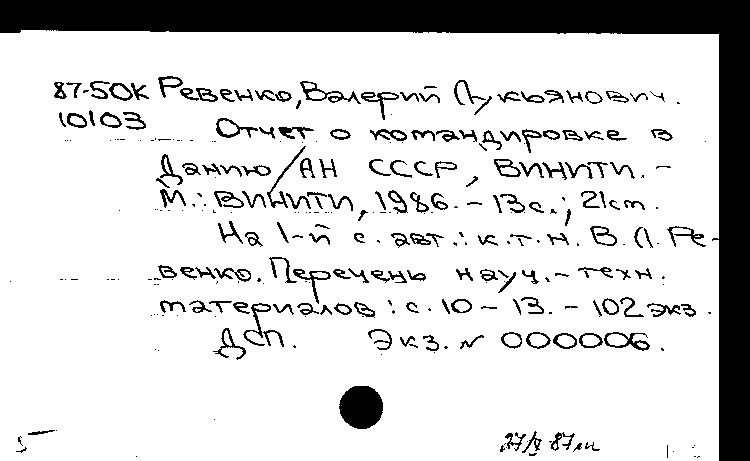 87-50К Ревенко, Валерий Лукьянович.
10103 Отчет о командировке в
Данию / АН СССР, ВИНИТИ. -
М.: ВИНИТИ, 1986. - 13 с.; 21 cm.
На 1-й с. авт.: к.т.н. В.Л. Ре-
венко. Перечень науч.-техн.
материалов: с. 10 - 13. - 102 экз.
ДСП. Экз. № 000006.